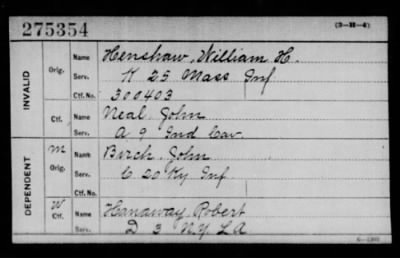 275354 (3-H-4)
INVALID
Orig. Name Henshaw, William H.
Serv. K 25 Mass Inf
Ctf. No. 300403
Ctf. Name Neal John
Serv. A 9 Ind Cav.
DEPENDENT
M Orig. Name Birch John
Serv. C 20 Ky Inf
Ctf. No.
W Ctf. Name Hanaway Robert
Serv. D 3 N.Y L A